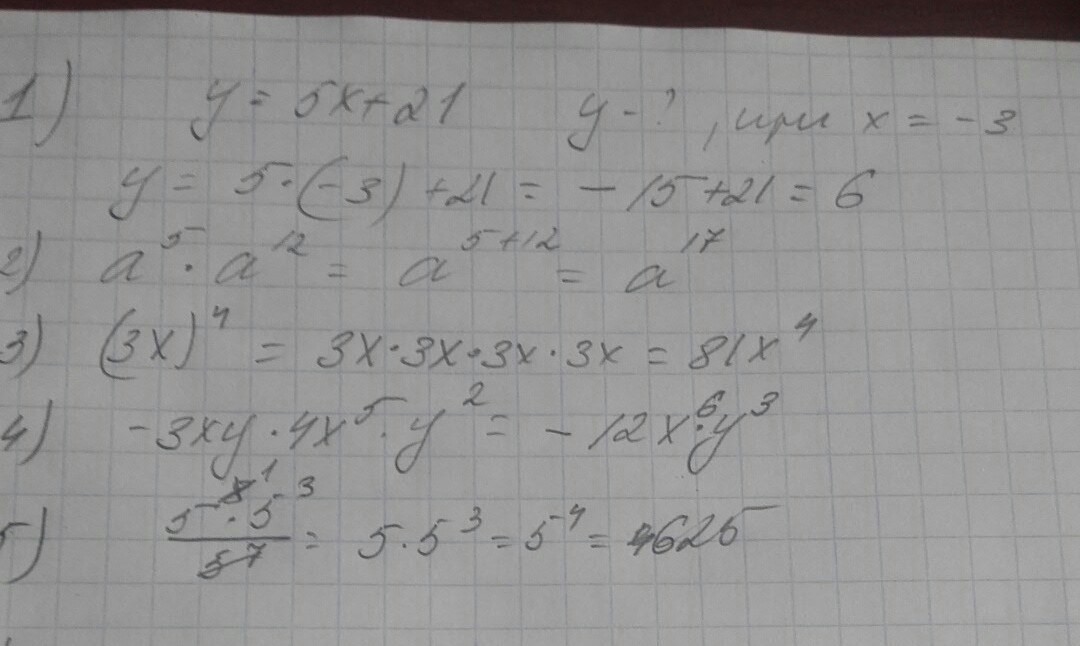 1) y = 5x+21 y - ? , при x = -3
y = 5·(-3) +21 = -15+21 = 6
2) a⁵ · a¹² = a⁵⁺¹² = a¹⁷
3) (3x)⁴ = 3x·3x·3x·3x = 81x⁴
4) -3xy·4x⁵·y² = -12x⁶·y³
5) 5⁸ ¹·5³/5⁷ = 5·5³ = 5⁴ = 625